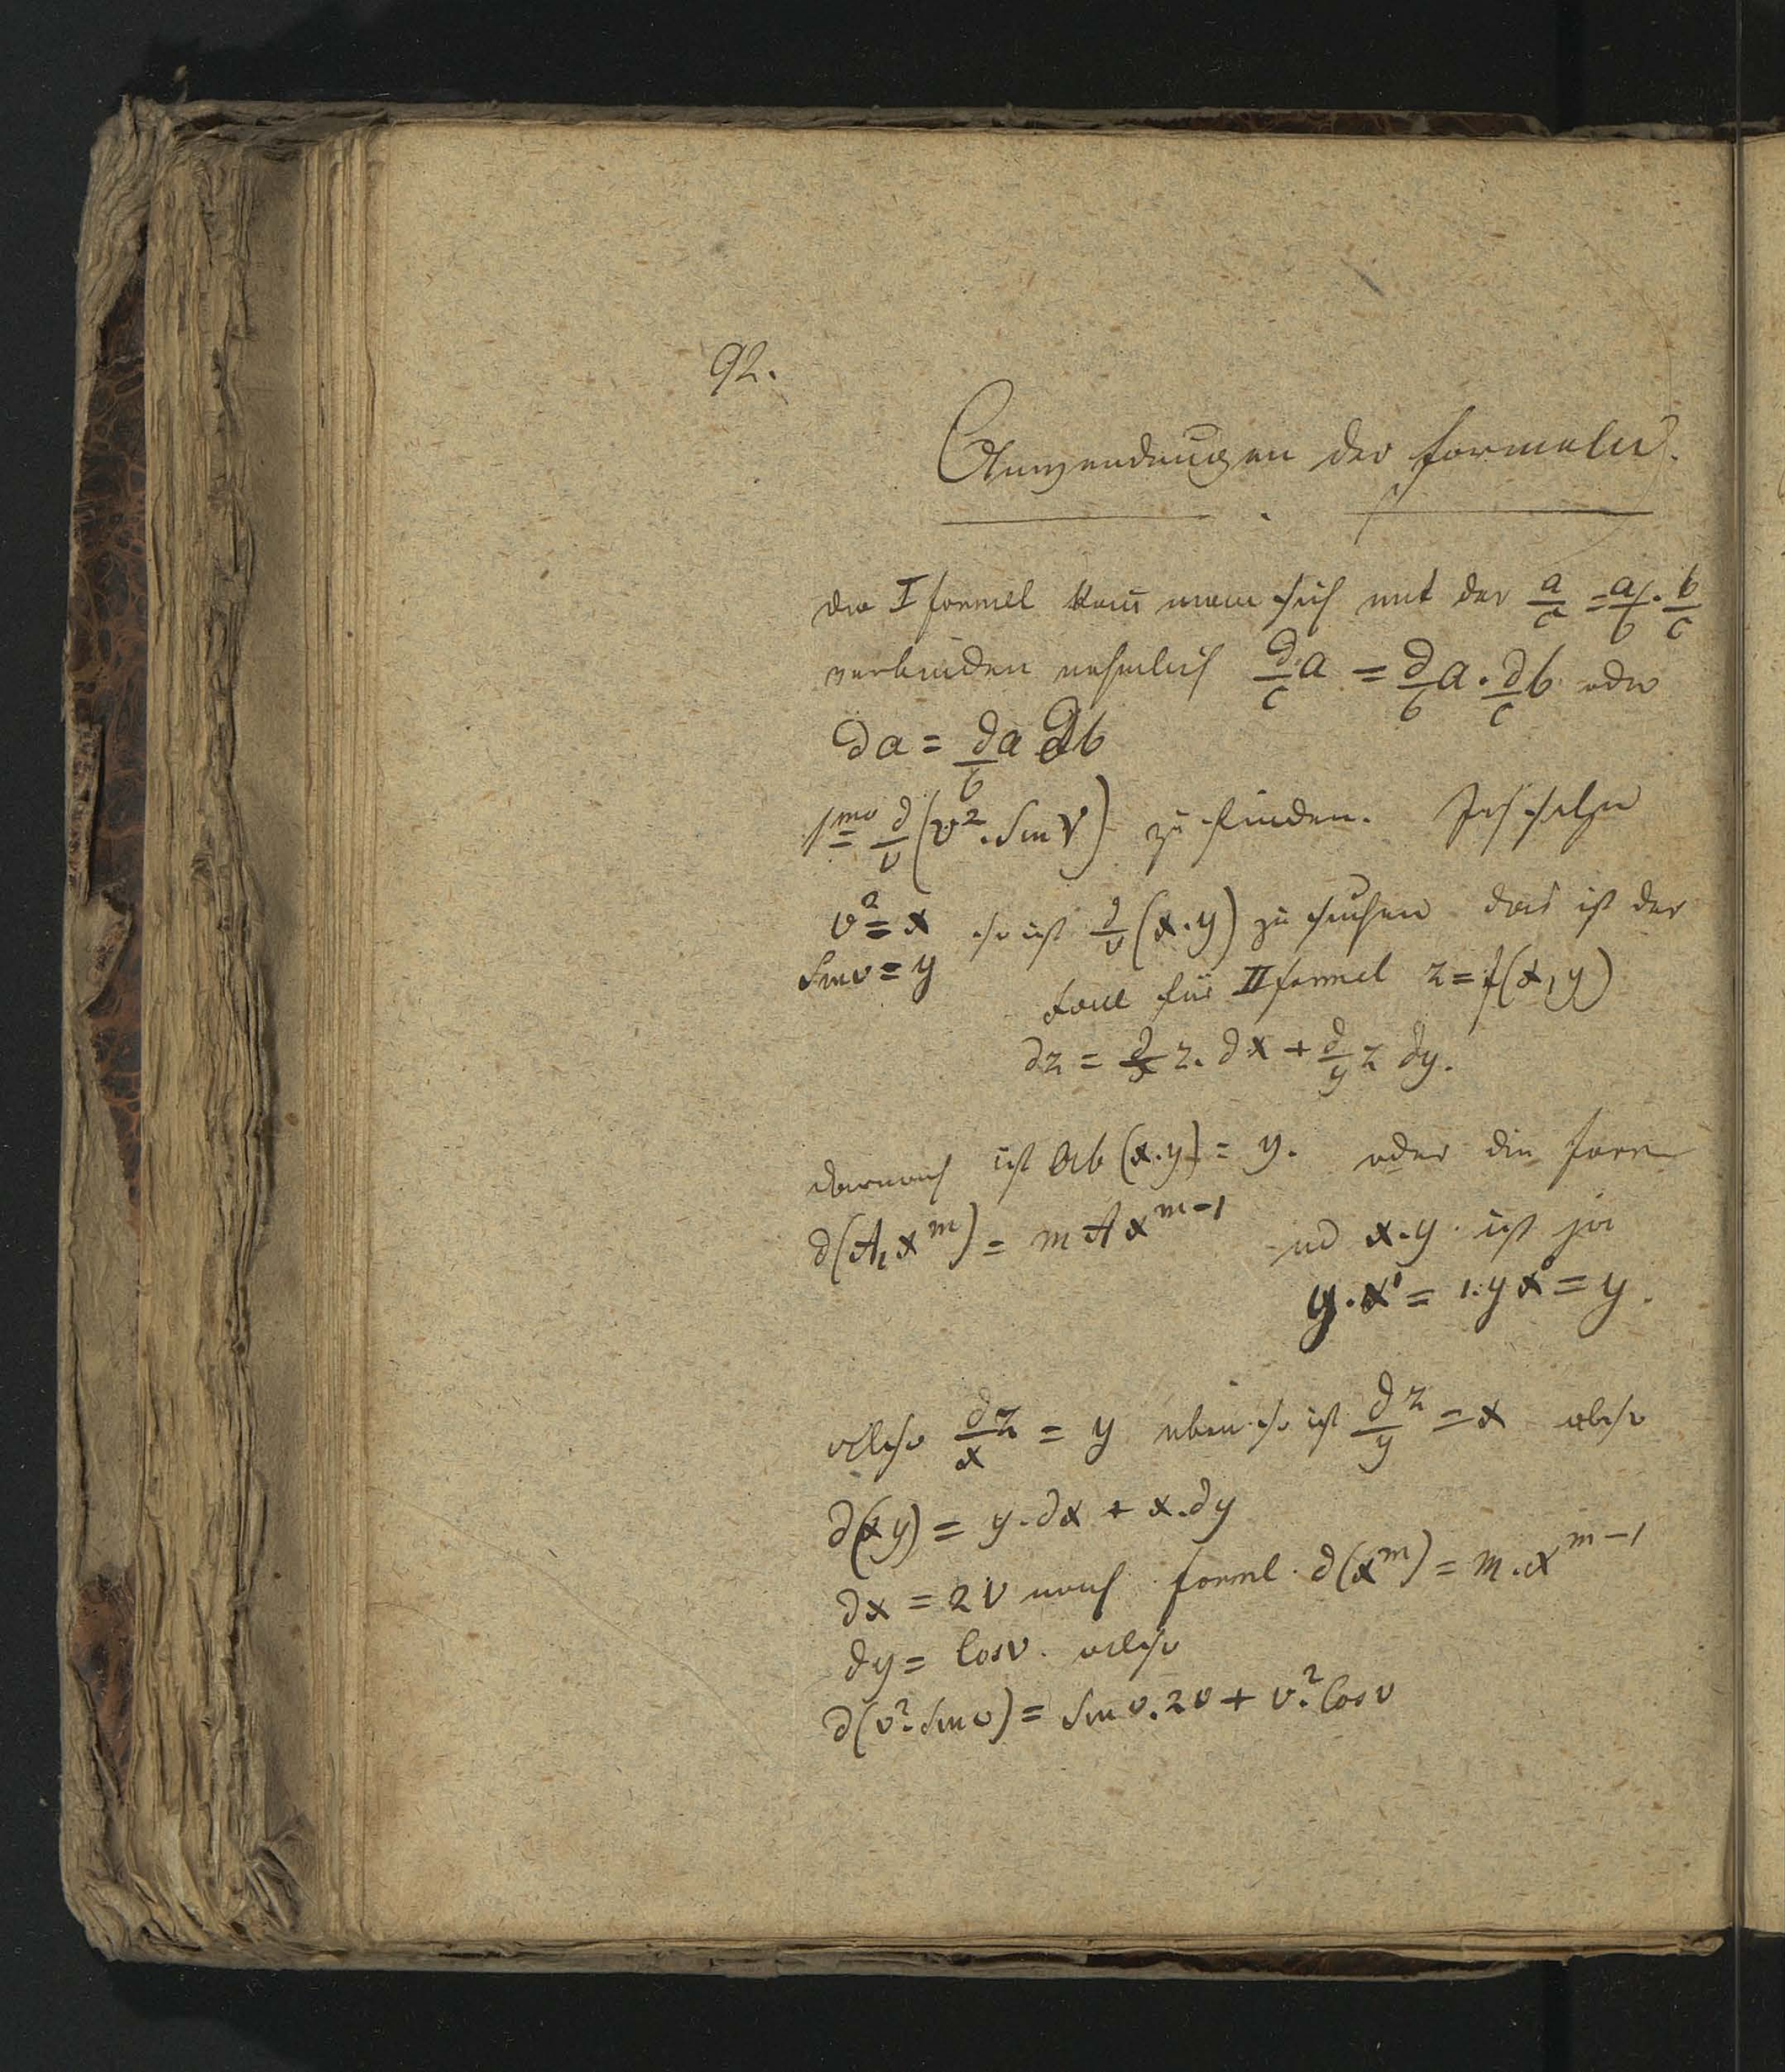 92.
Anwendungen der Formeln.
die I Formel kann man sich mit der a/c = a/b · b/c
verbinden nehmlich ∂/c a = ∂/b a · ∂/c b oder
∂a = ∂/b a ∂b
1mo ∂/v (v² · Sin v) zu finden. Ich setze
v² = x so ist ∂/v (x·y) zu suchen das ist der
Sin v = y
Fall für II Formel z = f(x, y)
∂z = ∂/x z. ∂x + ∂/y z ∂y.
darnach ist Ab (x·y) = y. oder die Form
∂(A, x^m) = m A x^(m-1) und x·y ist ja
y·x¹ = 1·y x⁰ = y.
also ∂/x z = y ebenso ist ∂/y z = x also
∂(xy) = y·∂x + x·∂y
∂x = 2v nach Forml. ∂(x^m) = m·x^(m-1)
∂y = Cos v. also
∂(v²·Sin v) = Sin v. 2v + v².Cos v